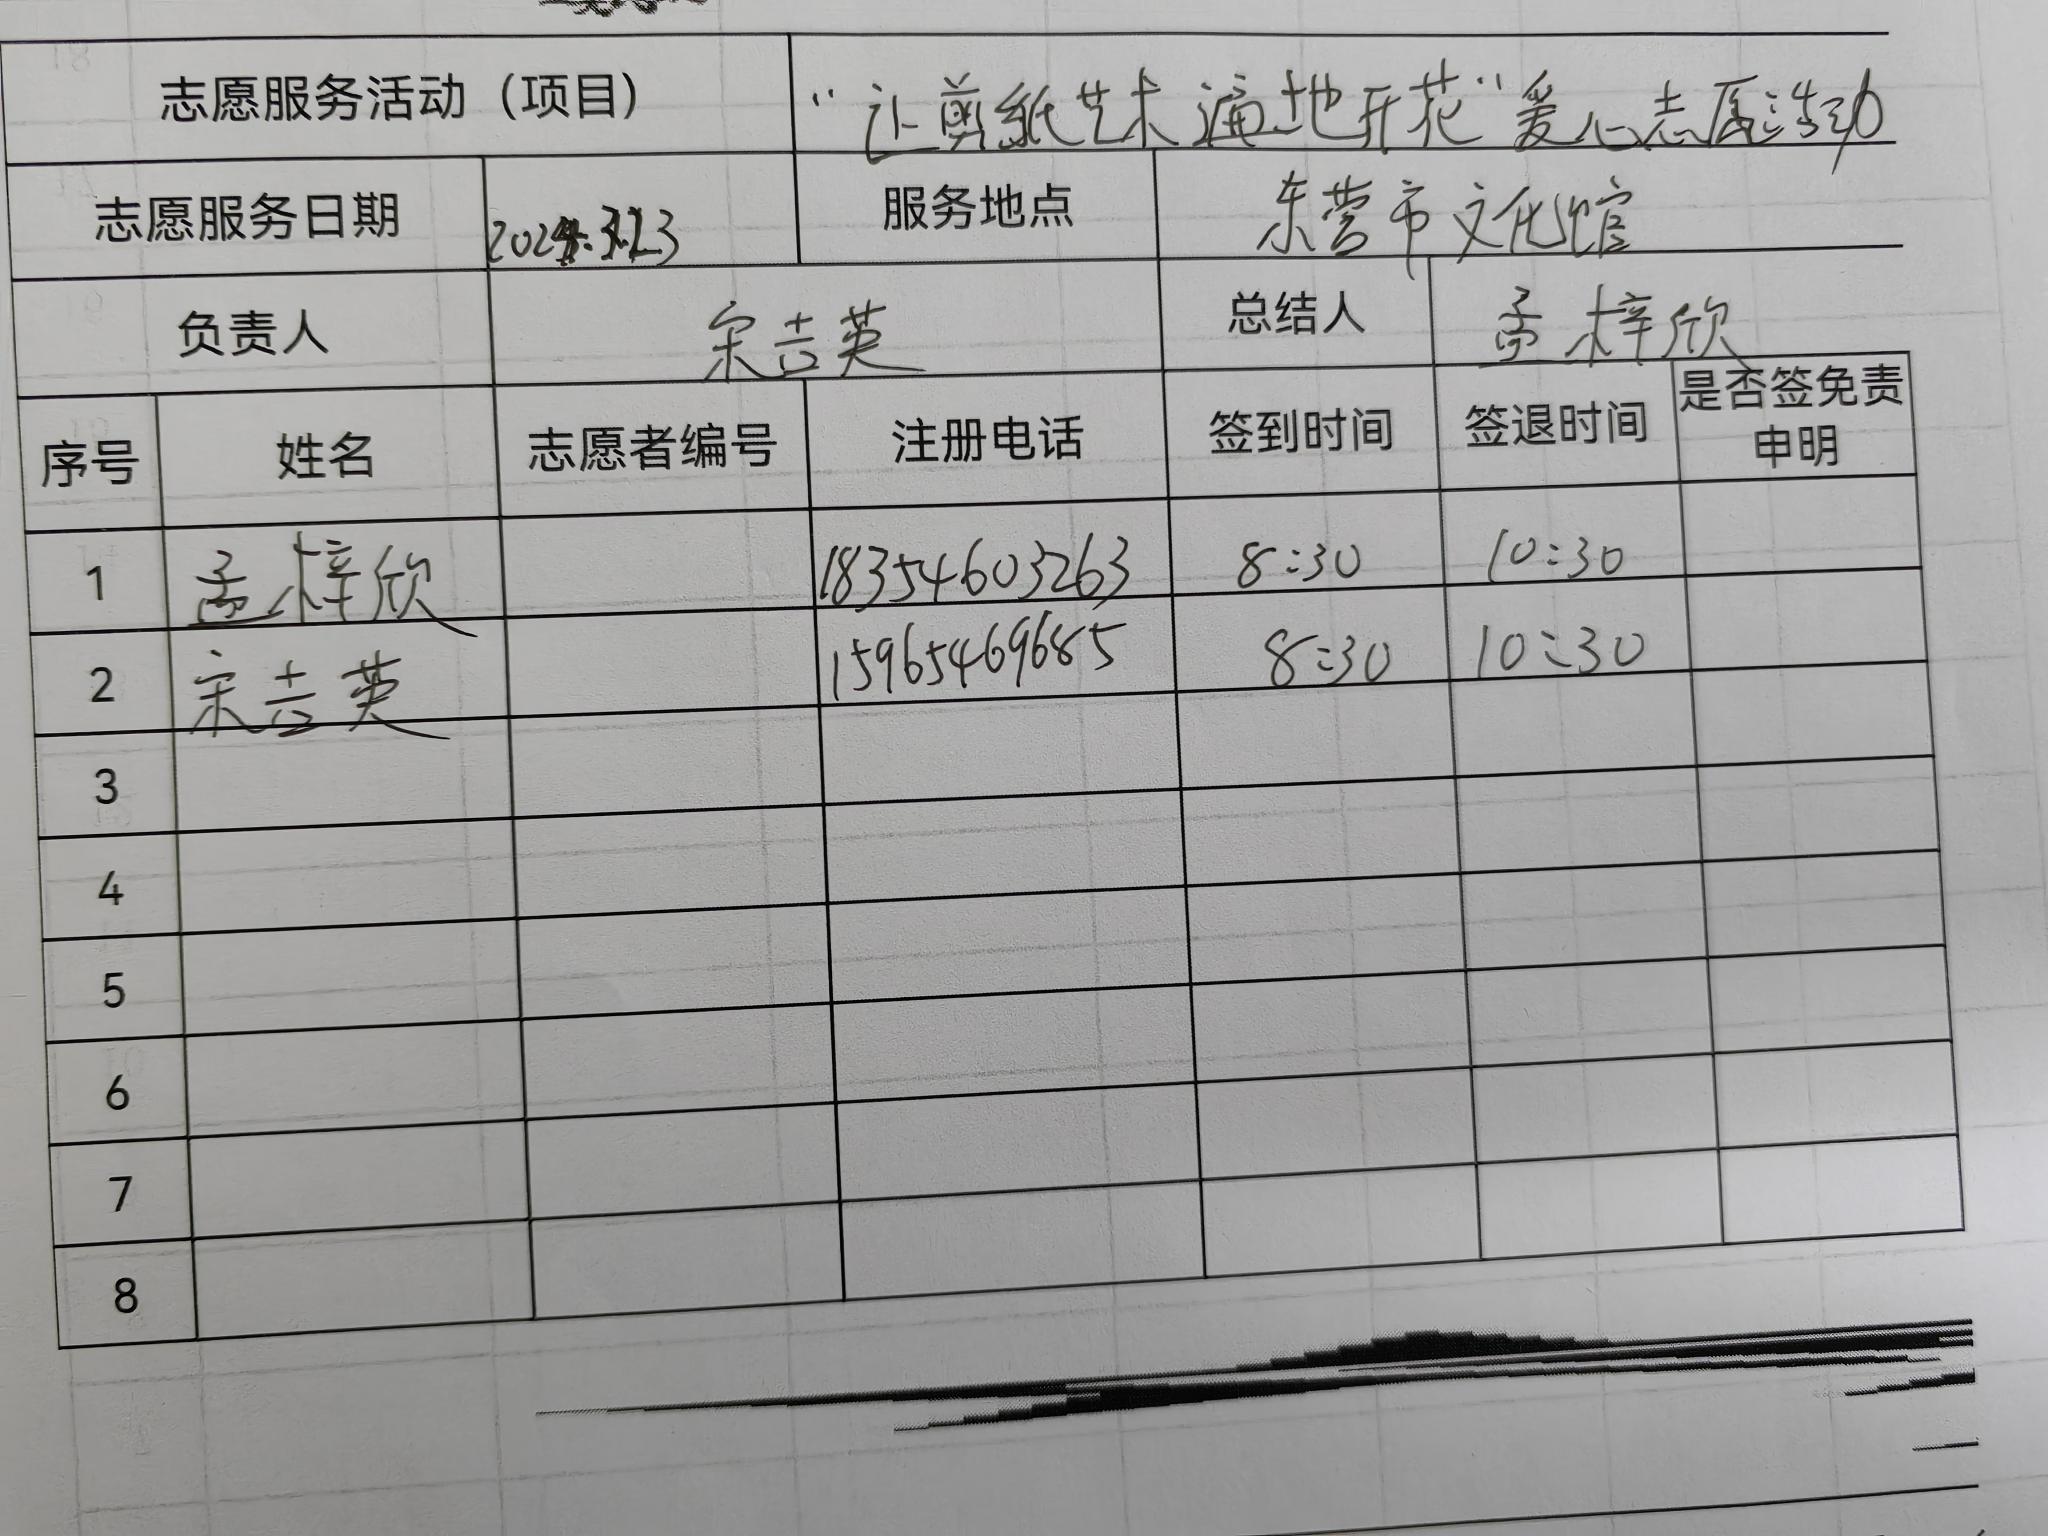 志愿服务活动（项目） “让剪紙艺术遍地开花”爱心志愿活动
志愿服务日期 服务地点 东营市文化馆
负责人 宋吉英 总结人 孟梓欣
序号 姓名 志愿者编号 注册电话 签到时间 签退时间 是否签免责申明
1 孟梓欣 18354603263 8:30 10:30
2 宋吉英 15965469685 8:30 10:30
3
4
5
6
7
8